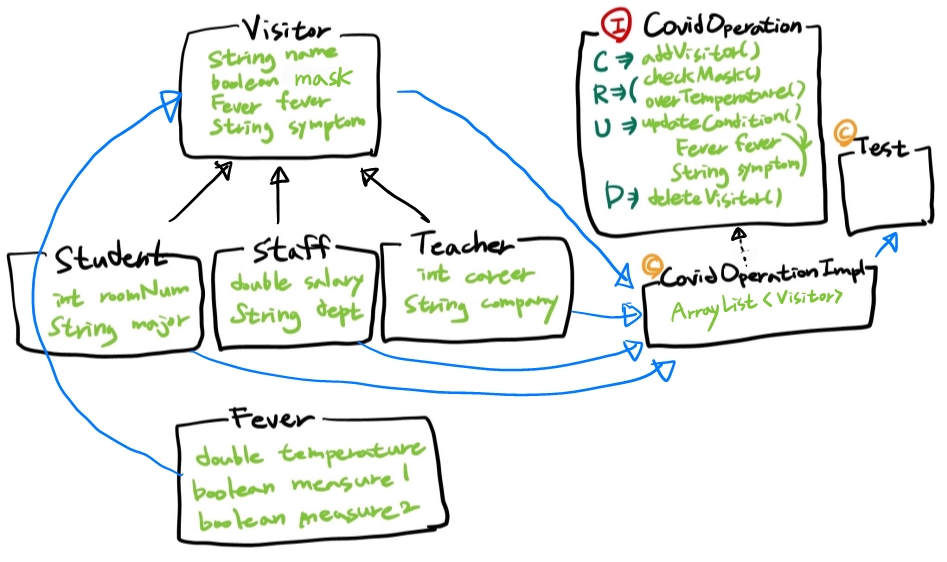 Visitor
String name
boolean mask
Fever fever
String symptom
I CovidOperation
C ⇒ addVisitor()
R ⇒ ( checkMask()
overTemperature()
U ⇒ updateCondition()
Fever fever
String symptom
D ⇒ deleteVisitor()
C
Test
Student
int roomNum
String major
Staff
double salary
String dept
Teacher
int career
String company
C
CovidOperationImpl
ArrayList <Visitor>
Fever
double temperature
boolean measure1
boolean measure2